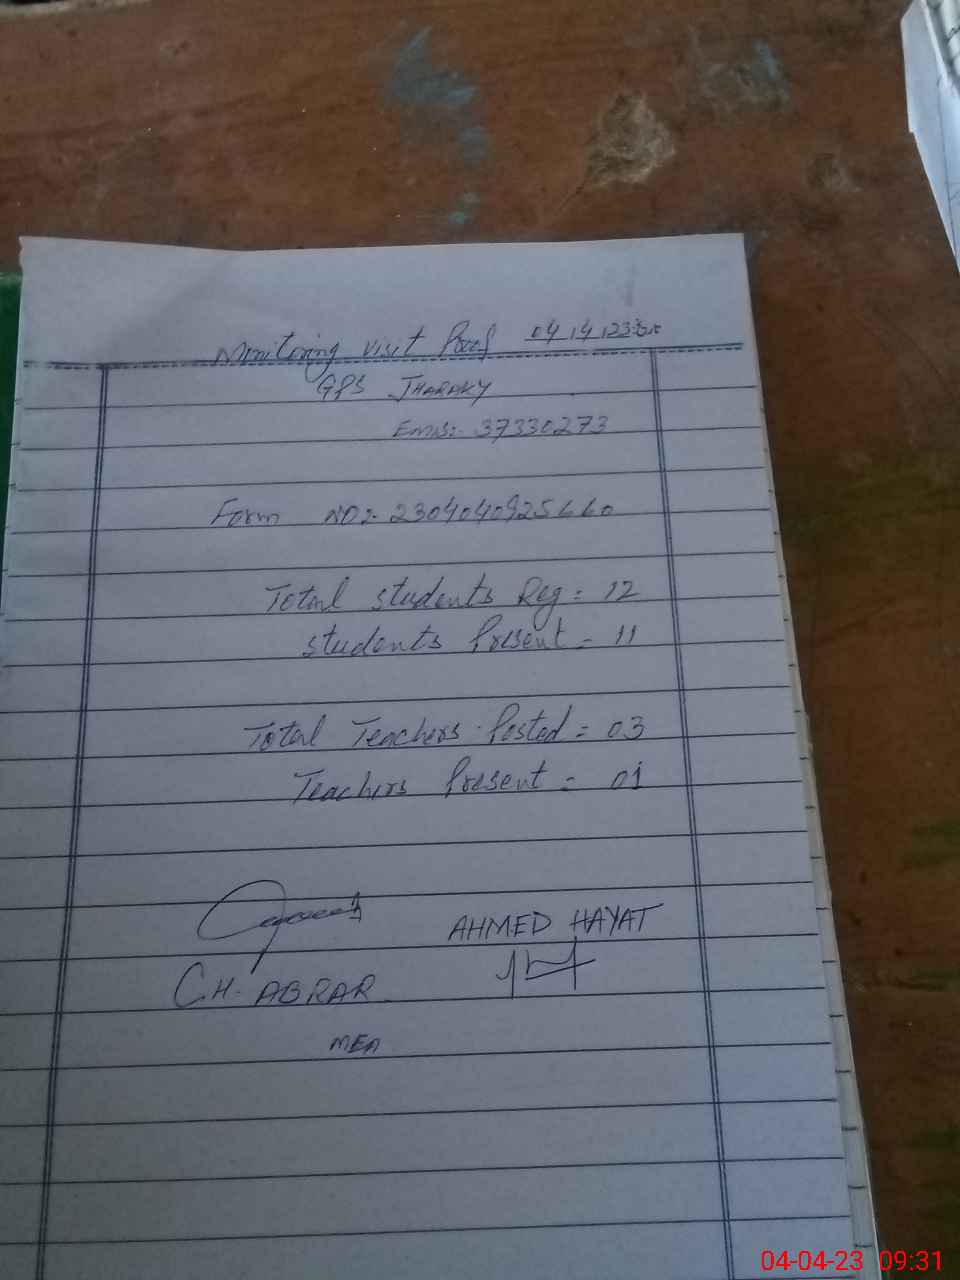 Monitoring visit Proof
GPS JHARAKY
Emis:- 37330273
Form NO:- 230404092566 0
Total students Reg = 12
students Present = 11
Total Teachers Posted = 03
Teachers Present = 01
AHMED HAYAT
CH. ABRAR
MEA
04-04-23 09:31